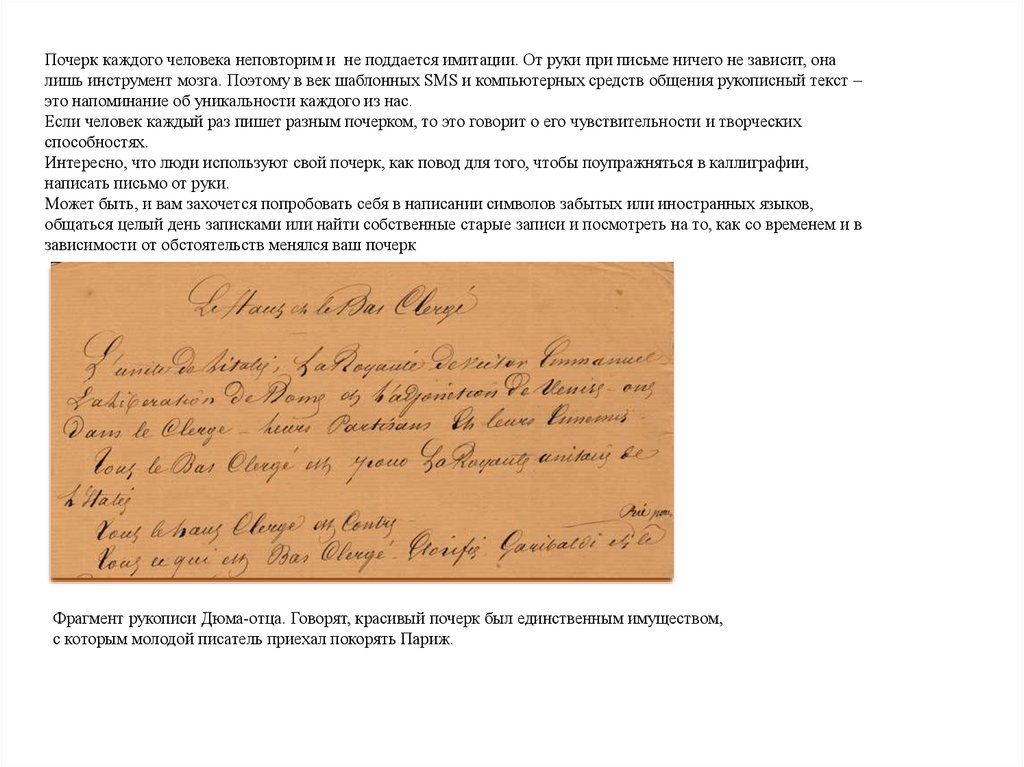 Почерк каждого человека неповторим и  не поддается имитации. От руки при письме ничего не зависит, она
лишь инструмент мозга. Поэтому в век шаблонных SMS и компьютерных средств общения рукописный текст –
это напоминание об уникальности каждого из нас.
Если человек каждый раз пишет разным почерком, то это говорит о его чувствительности и творческих
способностях.
Интересно, что люди используют свой почерк, как повод для того, чтобы поупражняться в каллиграфии,
написать письмо от руки.
Может быть, и вам захочется попробовать себя в написании символов забытых или иностранных языков,
общаться целый день записками или найти собственные старые записи и посмотреть на то, как со временем и в
зависимости от обстоятельств менялся ваш почерк
Le Haut et le Bas Clergé
L'unité de l'italie, La Royauté de victor Emmanuel
La Liberation de Rome et l'adjonction de Venise - ont
Dans le Clergé - leurs Partisans Et leurs Ennemis -
Tout le Bas Clergé est pour La Royauté unitaire de
L'Italie
Tout le haut Clergé est Contre -
Tout ce qui est Bas Clergé. Glorifie Garibaldi et le
Prié pour
Фрагмент рукописи Дюма-отца. Говорят, красивый почерк был единственным имуществом,
с которым молодой писатель приехал покорять Париж.